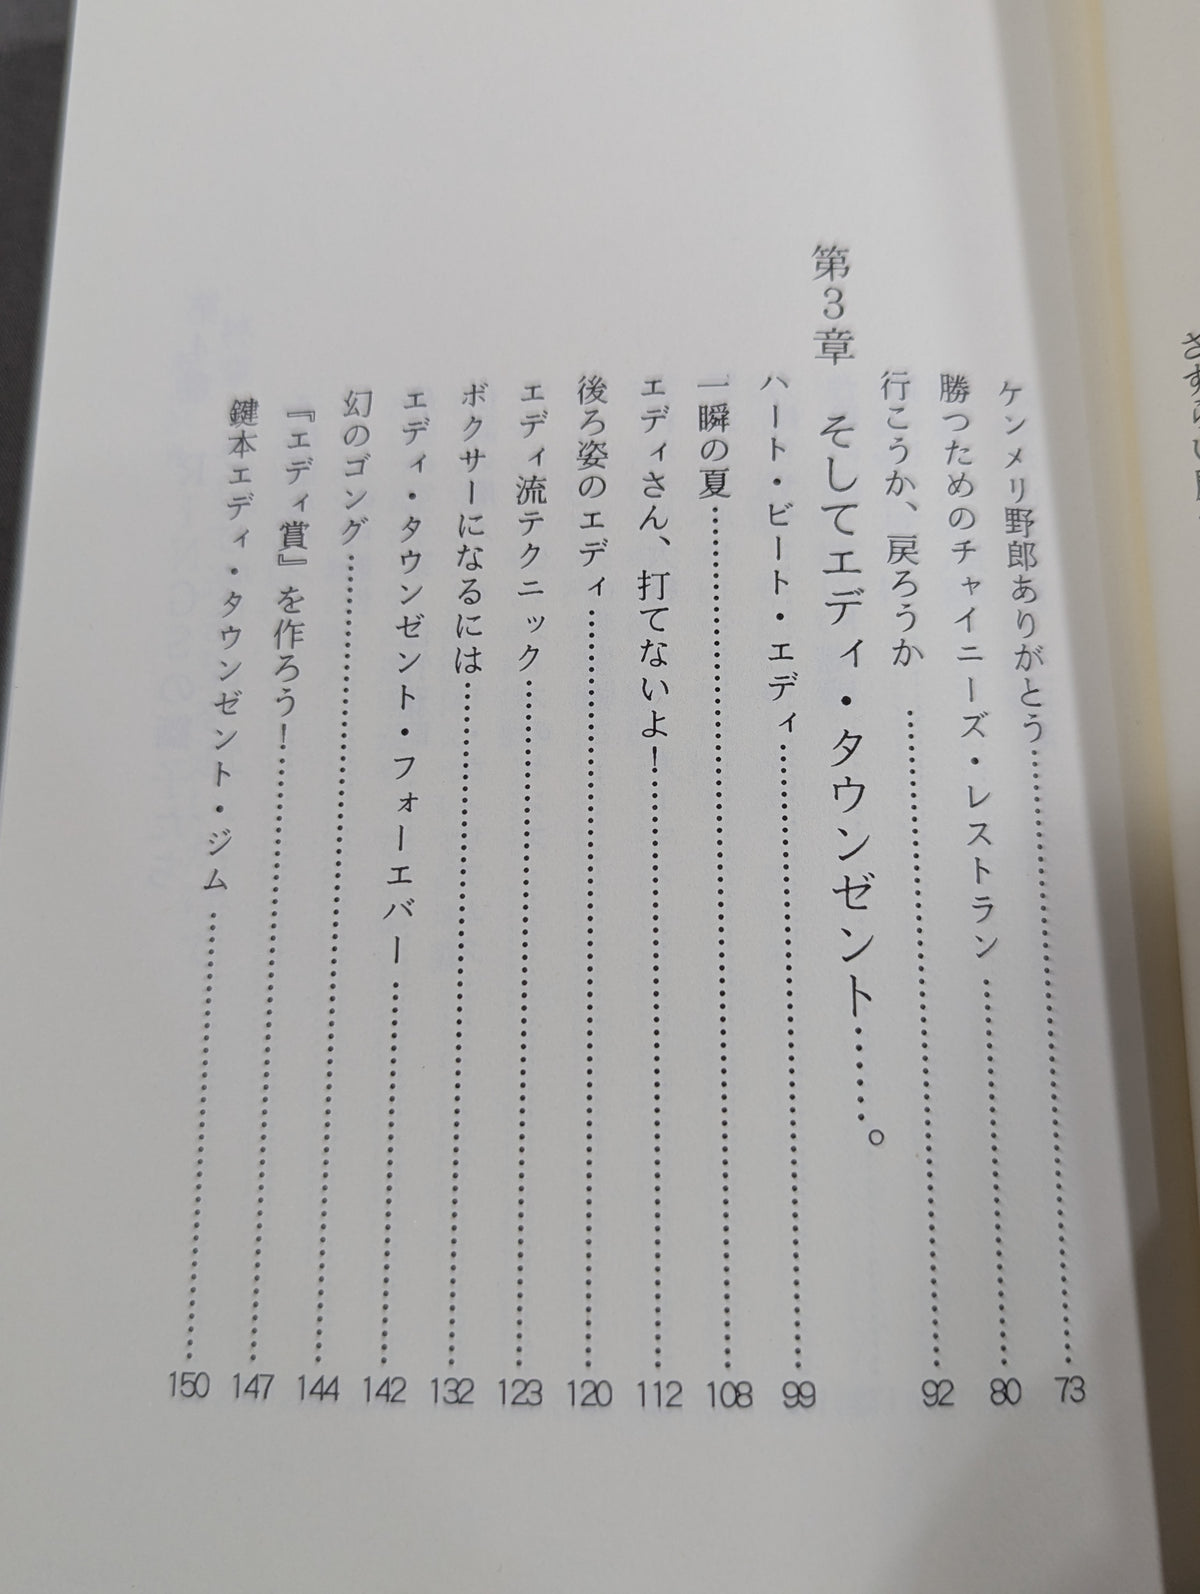 さすらい
ケンメリ野郎ありがとう……………………73
勝つためのチャイニーズ・レストラン……………………80
行こうか、戻ろうか……………………92
第3章 そしてエディ・タウンゼント……。
ハート・ビート・エディ……………………99
一瞬の夏……………………108
エディさん、打てないよ！……………………112
後ろ姿のエディ……………………120
エディ流テクニック……………………123
ボクサーになるには……………………132
エディ・タウンゼント・フォーエバー……………………142
幻のゴング……………………144
『エディ賞』を作ろう！……………………147
鍵本エディ・タウンゼント・ジム……………………150